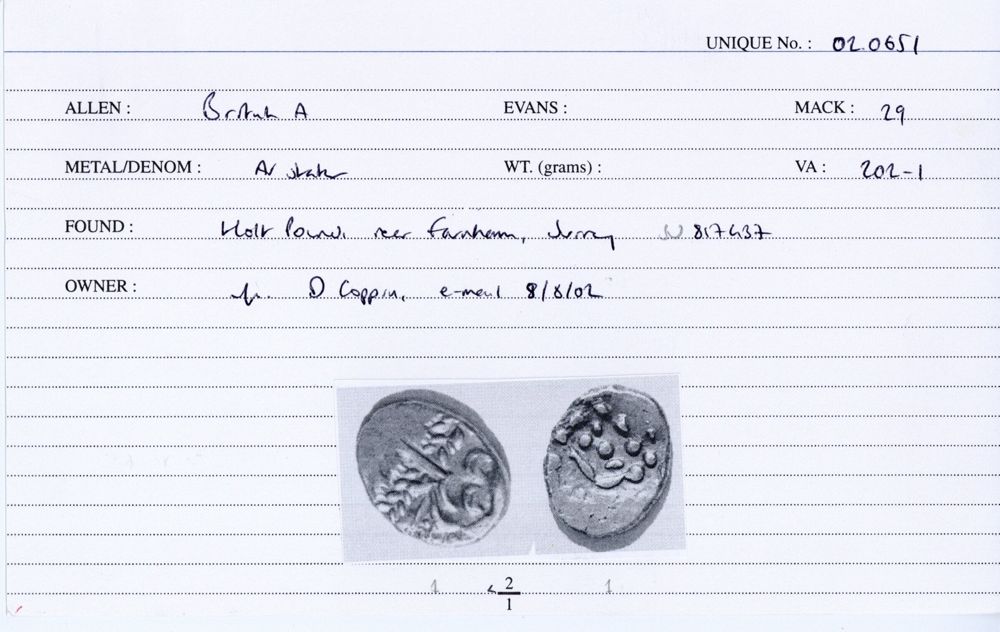 UNIQUE No. : 02.0651
ALLEN : British A EVANS : MACK : 29
METAL/DENOM : AV stater WT. (grams) : VA : 202-1
FOUND : Holt Pound, near Farnham, Surrey SU 817437
OWNER : D Coppin, e-mail 8/8/02
1 < 2/1 1